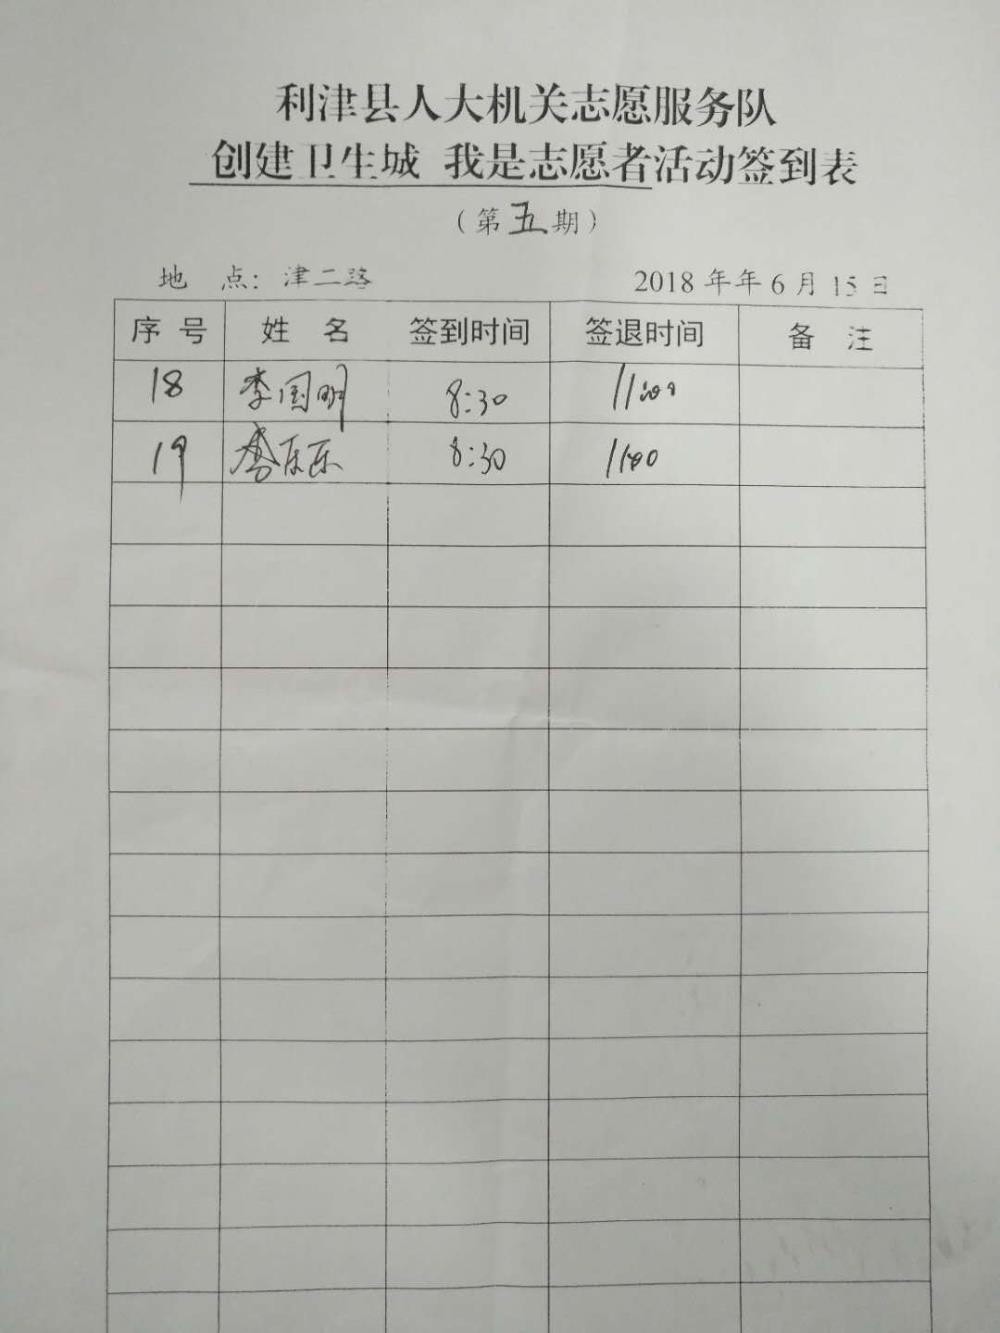 利津县人大机关志愿服务队
创建卫生城 我是志愿者活动签到表
（第五期）
地 点：津二路 2018年年6月15日
序号 姓名 签到时间 签退时间 备注
18 李国明 8:30 11:00
19 乐乐 8:30 1100